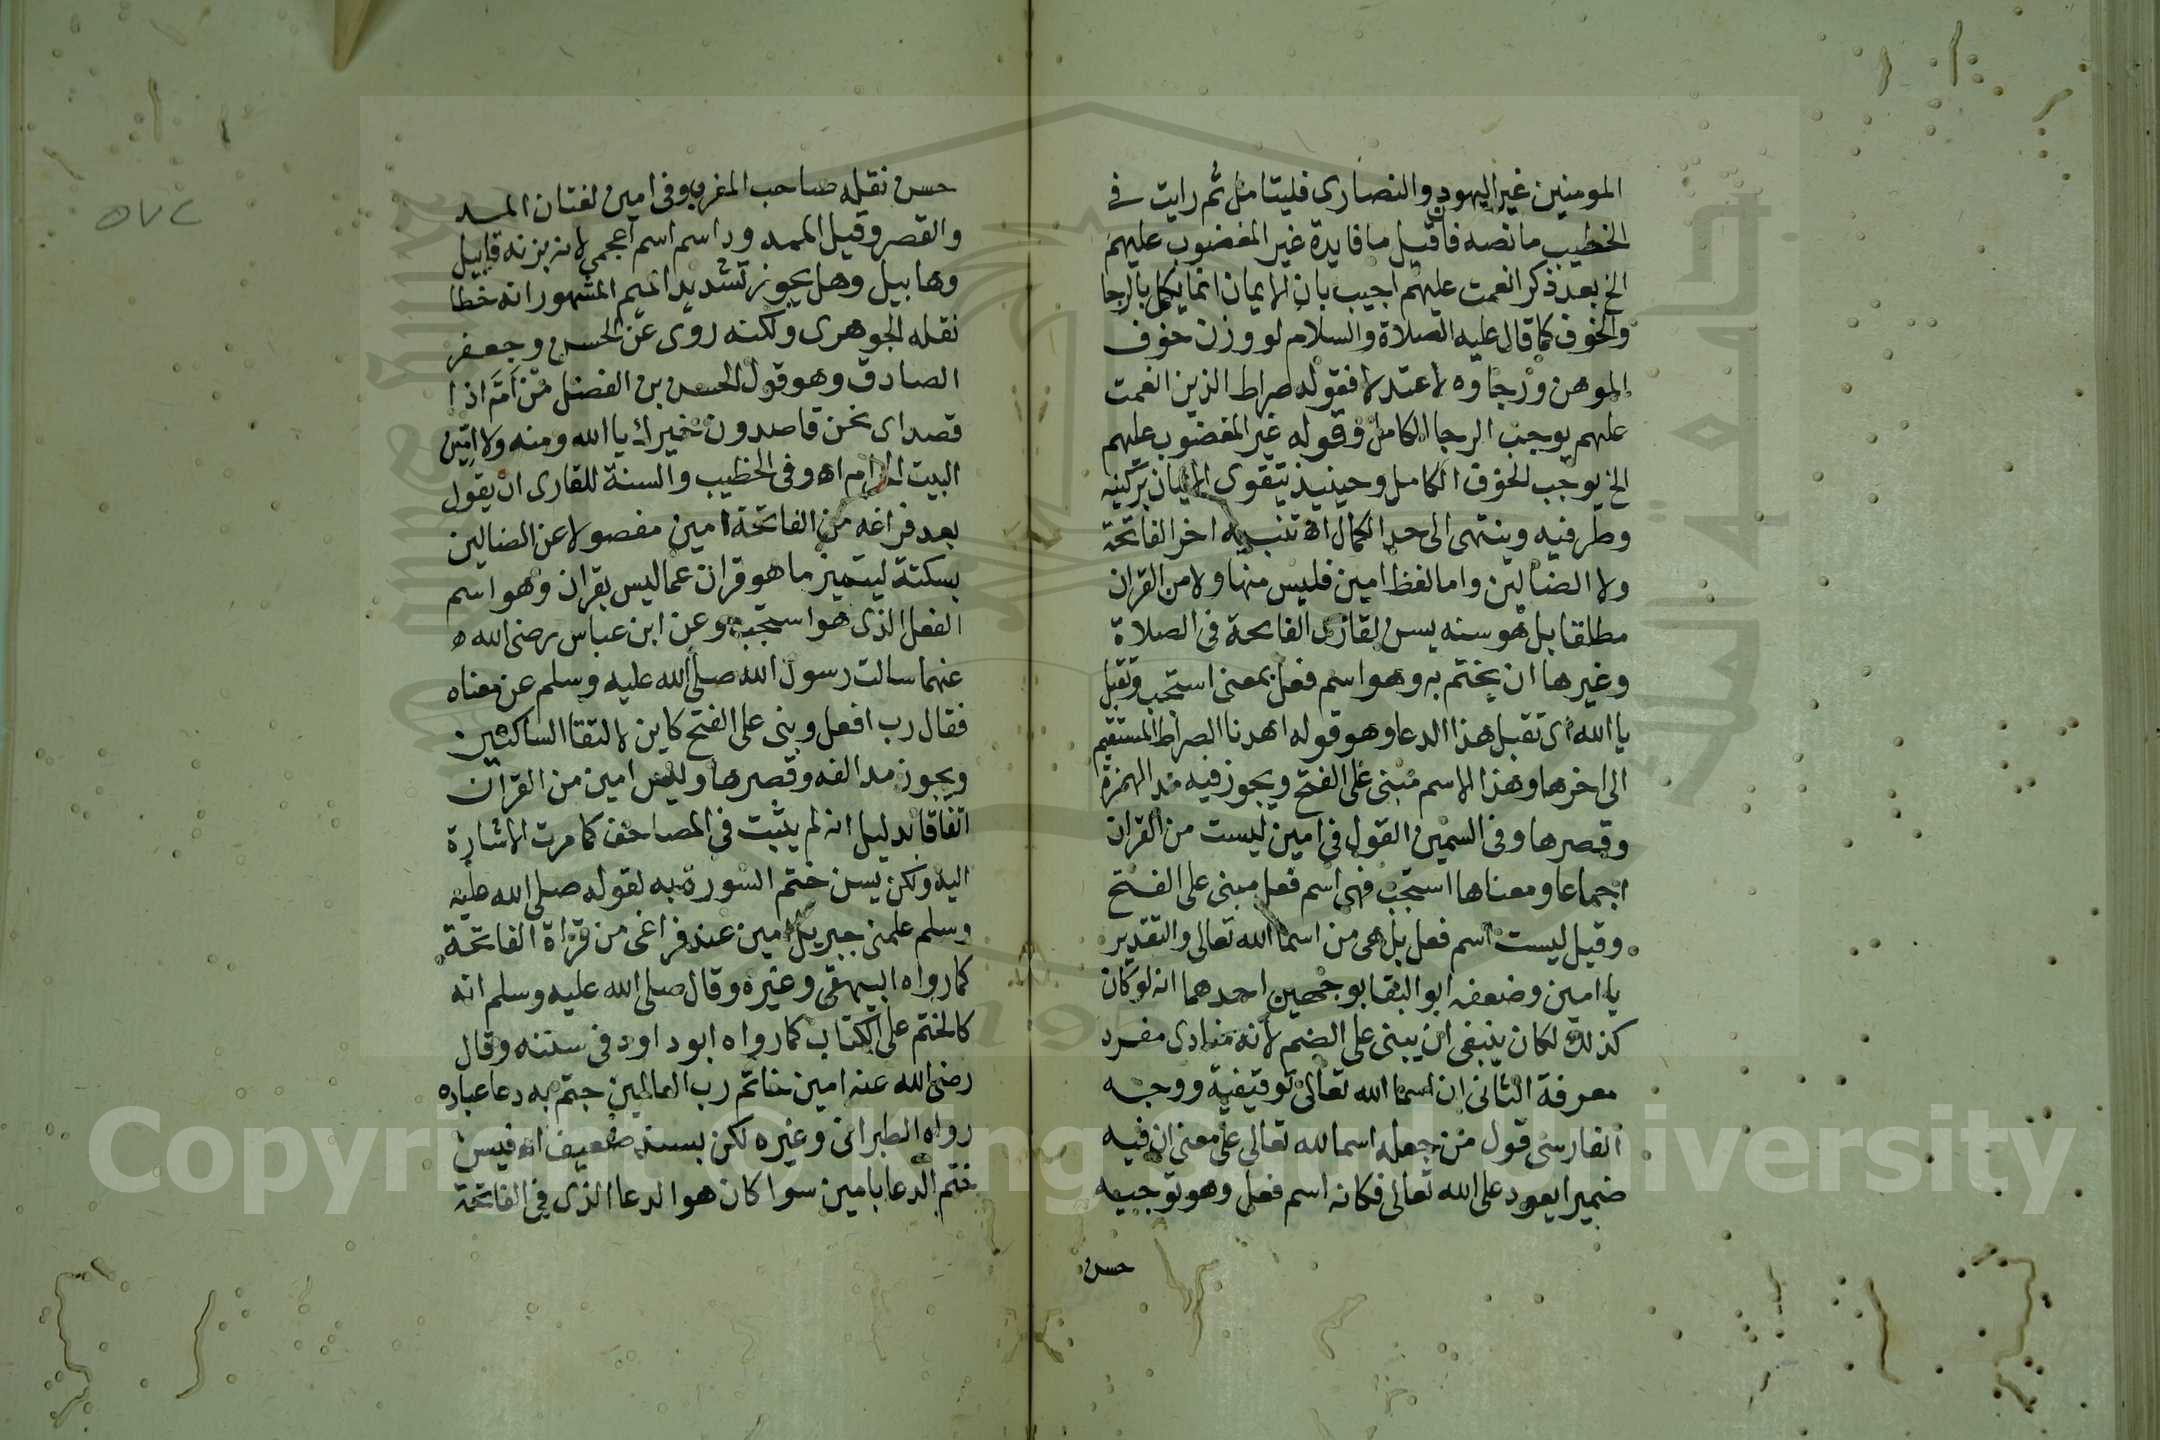 المومنين غير اليهود والنصارى فليتامل ثم رايت في
الخطيب ما نصه فان قيل ما فايدة غير المغضوب عليهم
الخ بعد ذكر انعمت عليهم اجيب بان الايمان انما يكمل بالرجا
والخوف كما قال عليه الصلاة والسلام لو وزن خوف
المومن ورجاوه لاعتدلا فقوله صراط الذين انعمت
عليهم يوجب الرجا الكامل وقوله غير المغضوب عليهم
الخ يوجب الخوف الكامل وحينيذ يتقوى الايمان بركنيه
وطرفيه وينتهى الى حد الكمال اه تنبيه اخر الفاتحة
ولا الضالين واما لفظ امين فليس منها ولا من القران
مطلقا بل هو سنه يسن لقارى الفاتحة فى الصلاة
وغيرها ان يختم به وهو اسم فعل بمعنى استجب وتقبل
يا الله اى تقبل هذا الدعا وهو قوله اهدنا الصراط المستقيم
الى اخرها وهذا الاسم مبنى على الفتح ويجوز فيه مد الهمزة
وقصرها وفى السمين القول فى امين ليست من القران
اجماعا ومعناها استجب فهى اسم فعل مبنى على الفتح
وقيل ليست اسم فعل بل هى من اسما الله تعالى والتقدير
يا امين وضعفه ابو البقا بوجهين احدهما انه لو كان
كذلك لكان ينبغى ان يبنى على الضم لانه منادى مفرد
معرفة الثانى ان اسما الله تعالى توقيفية ووجه
الفارسى قول من جعله اسما لله تعالى على معنى ان فيه
ضميرا يعود على الله تعالى فكانه اسم فعل وهو توجيه
حسن
حسن نقله صاحب المغرب وفى امين لغتان المد
والقصر وقيل الممدود اسم اعجمي لانه بزنه قابيل
وهابيل وهل يجوز تشديد الميم المشهور انه خطا
نقله الجوهرى ولكنه روى عن الحسن وجعفر
الصادق وهو قول الحسن بن الفضل من اَمَّ اذا
قصد اى نحن قاصدون خيرك يا الله ومنه ولا امّين
البيت الحرام اه وفى الخطيب والسنة للقارى ان يقول
بعد فراغه من الفاتحة امين مفصولا عن الضالين
بسكتة ليتميز ما هو قران عما ليس بقران وهو اسم
الفعل الذى هو استجب وعن ابن عباس رضى الله
عنهما سالت رسول الله صلى الله عليه وسلم عن معناه
فقال رب افعل وبنى على الفتح كاين لالتقا الساكنين
ويجوز مد الفه وقصرها وليس امين من القران
اتفاقا بدليل انه لم يثبت فى المصاحف كما مرت الاشارة
اليه ولكن يسن ختم السورة به لقوله صلى الله عليه
وسلم علمنى جبريل امين عند فراغى من قراة الفاتحة
كما رواه البيهقى وغيره وقال صلى الله عليه وسلم انه
كالختم على الكتاب كما رواه ابو داود فى سننه وقال
رضى الله عنه امين خاتم رب العالمين ختم به دعا عباده
رواه الطبرانى وغيره لكن بسند ضعيف اه فيسن
ختم الدعا بامين سوا كان هو الدعا الذى فى الفاتحة
Copyright © King Saud University